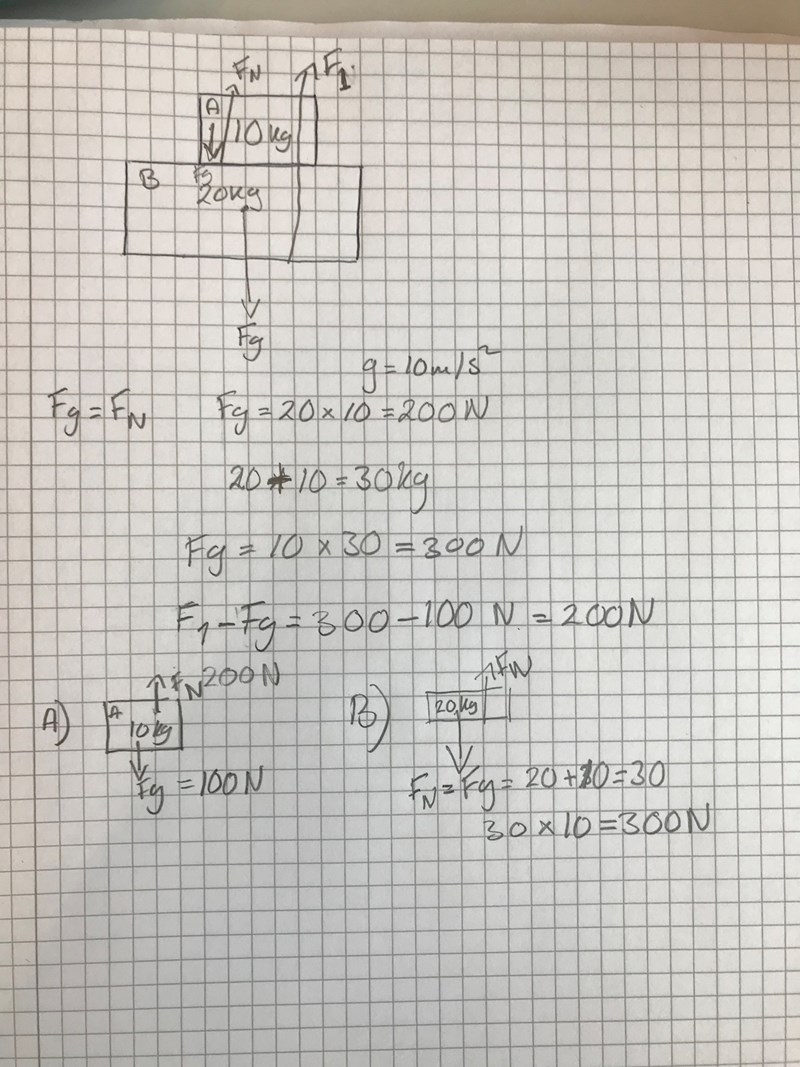 FN F1
A
10kg
Fg
B 20kg
Fg
g = 10m/s²
Fg = FN Fg = 20 × 10 = 200N
20 + 10 = 30kg
Fg = 10 × 30 = 300 N
F1 - Fg = 300 - 100 N = 200N
A) A 10kg FN 200N
Fg = 100N
B) 20kg FN
FN = Fg = 20 + 10 = 30
30 × 10 = 300N